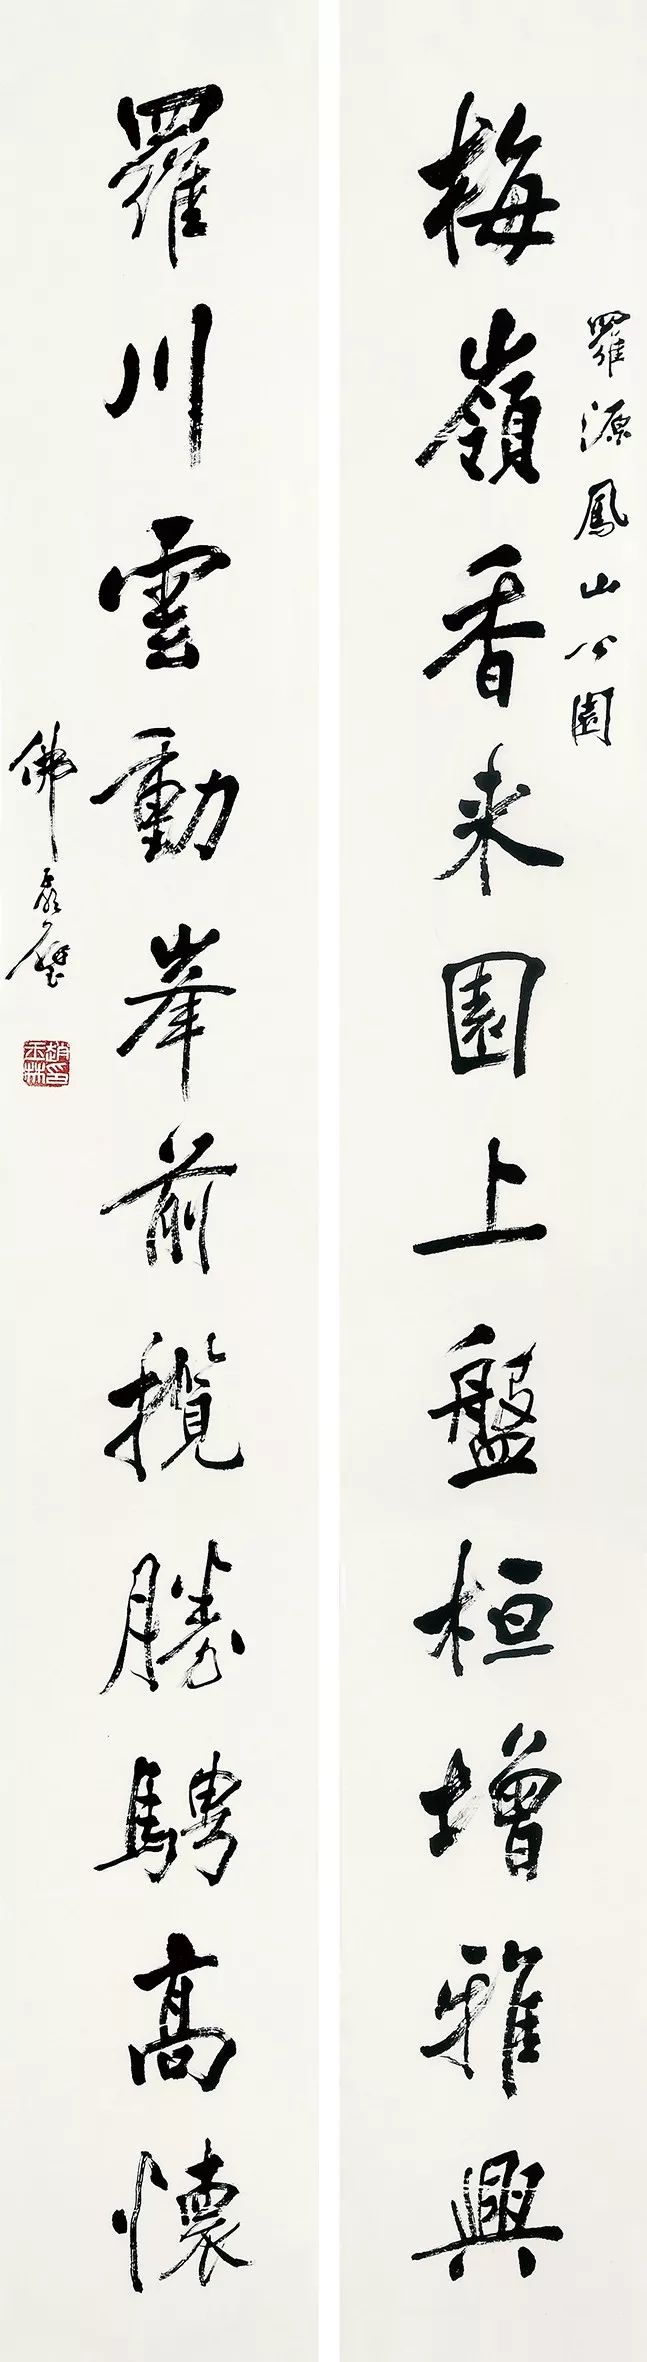 羅源鳳山公園
梅嶺香来園上盤桓增雅興
羅川雲動峯前攬勝騁高懷
佛
趙印玉林